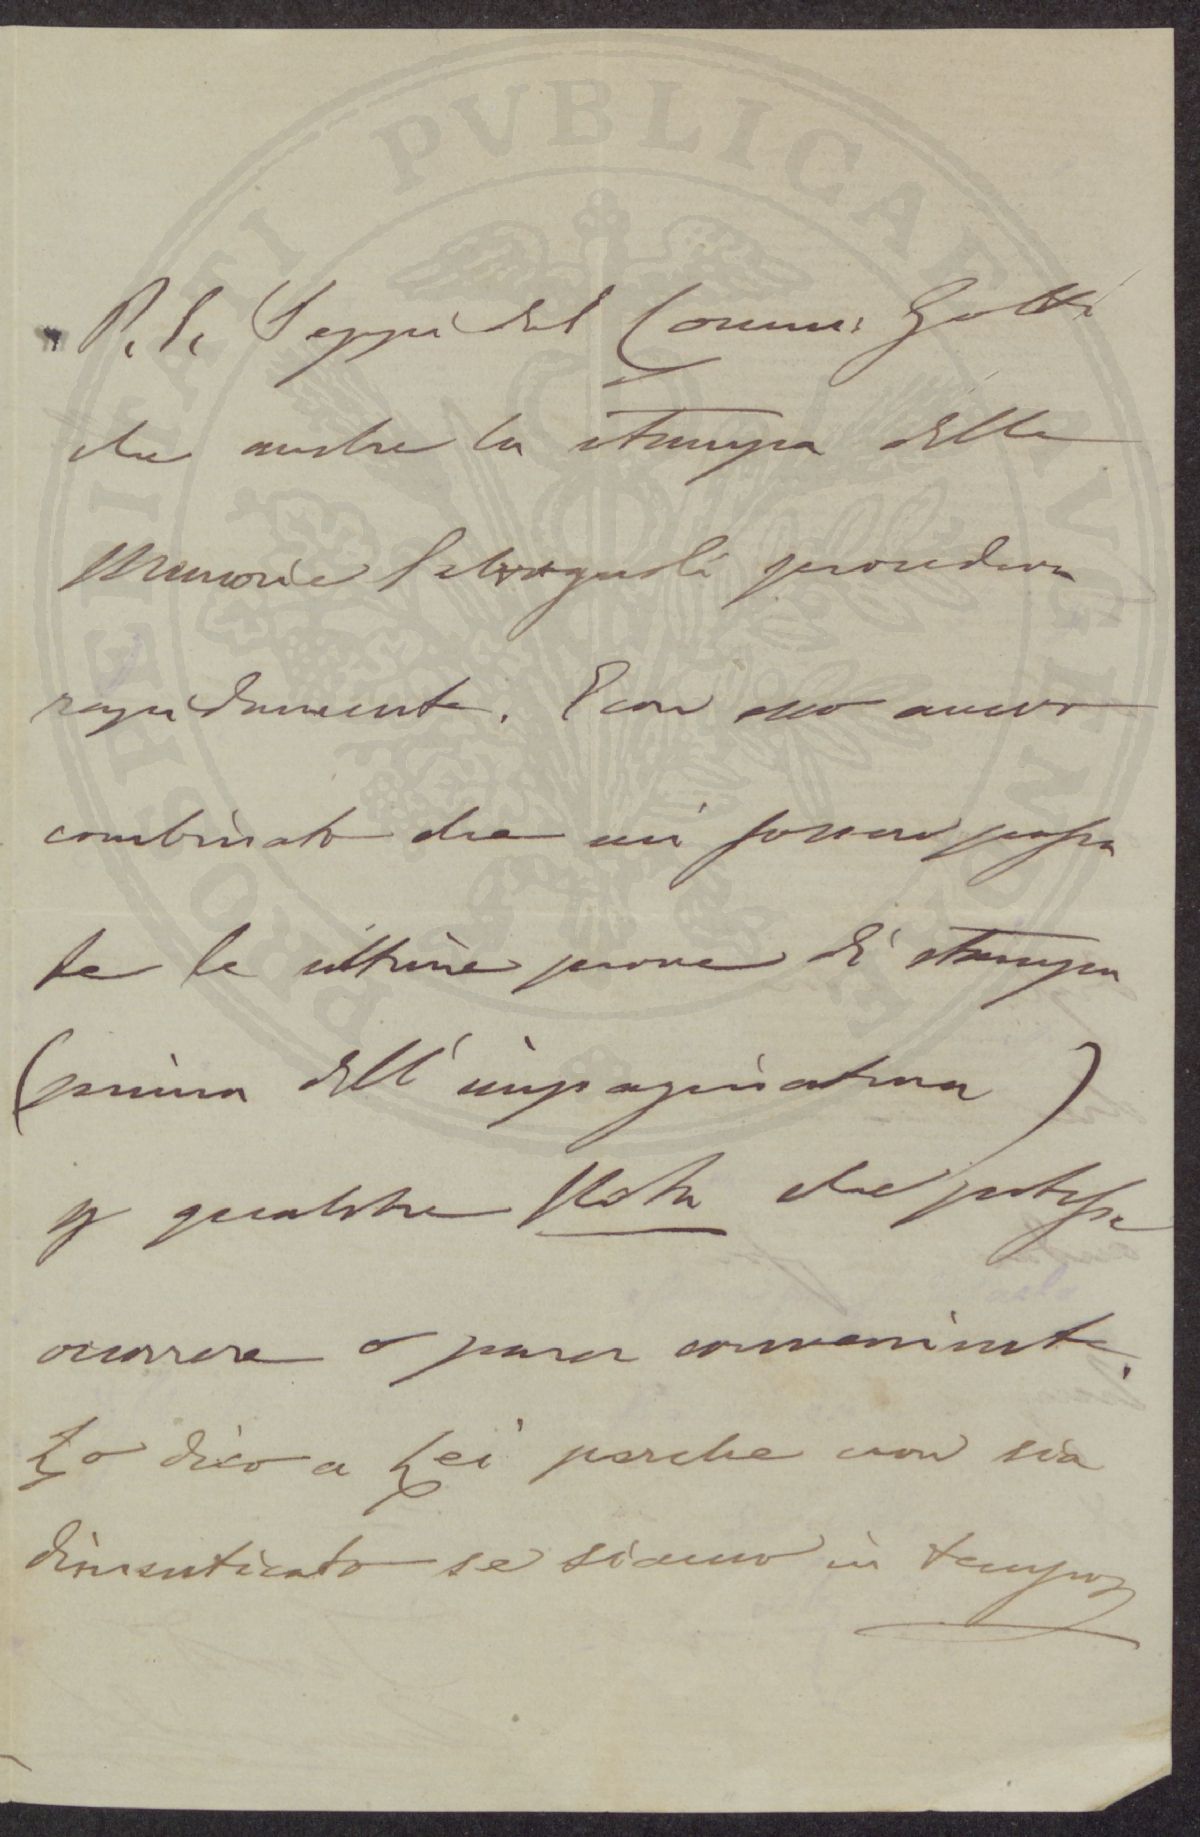 P. S. Seppi dal Comm: Gotti
che anche la stampa delle
Memorie procedeva
rapidamente. E con esso avevo
combinato che mi fossero passa
te le ultime prove di stampa
(prima dell'impaginatura)
p qualche Nota che potesse
occorrere o parer conveniente.
Lo dico a Lei perche non sia
dimenticato se siamo in tempo
PROSPERITATI PVBLICAE AVGENDAE